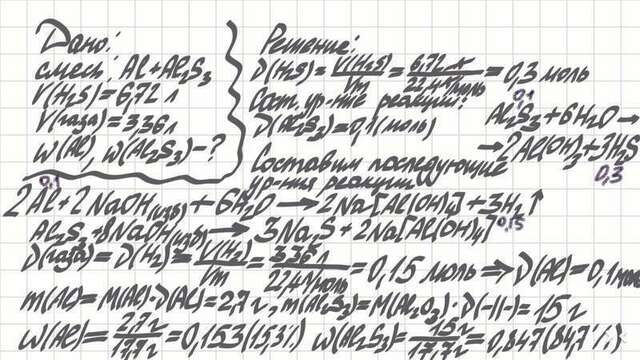 Дано:
смесь: Al + Al₂S₃
V(H₂S) = 6,72 л
V(газа) = 3,36 л
w(Al), w(Al₂S₃) - ?
Решение:
ν(H₂S) = V(H₂S)/Vm = 6,72 л/22,4 л/моль = 0,3 моль
Сост. ур-ние реакции:
0,1
Al₂S₃ + 6H₂O →
ν(Al₂S₃) = 0,1 (моль)
→ 2Al(OH)₃ + 3H₂S
0,3
Составим последующие
ур-ния реакций
0,1
2Al + 2NaOH(изб) + 6H₂O → 2Na[Al(OH)₄] + 3H₂↑
0,15
Al₂S₃ + 8NaOH(изб) → 3Na₂S + 2Na[Al(OH)₄]
ν(газа) = ν(H₂) = V(H₂)/Vm = 3,36 л/22,4 л/моль = 0,15 моль ⇒ ν(Al) = 0,1 моль
m(Al) = M(Al)·ν(Al) = 2,7 г, m(Al₂S₃) = M(Al₂O₃)·ν(-11-) = 15 г
w(Al) = 2,7 г/17,7 г = 0,153 (15,3%) w(Al₂S₃) = 15 г/17,7 г = 0,847 (84,7%)